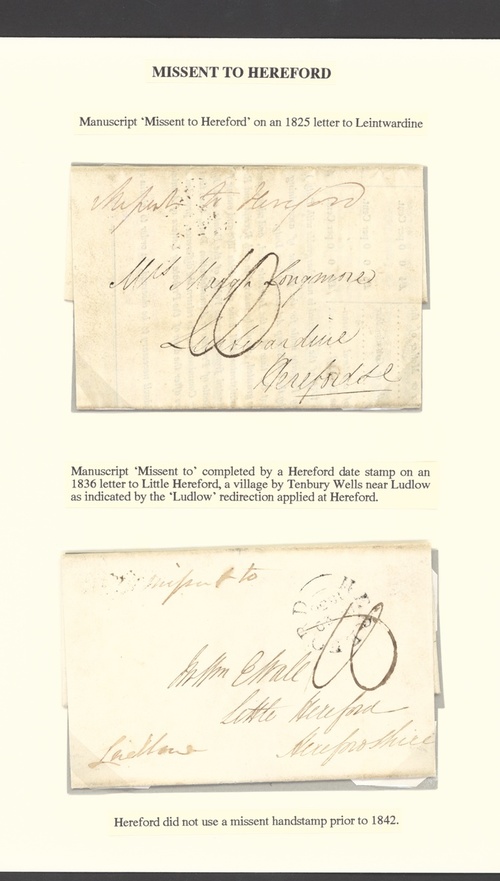 MISSENT TO HEREFORD
Manuscript 'Missent to Hereford' on an 1825 letter to Leintwardine
to Hereford
Longmore
Leintwardine
Manuscript 'Missent to' completed by a Hereford date stamp on an
1836 letter to Little Hereford, a village by Tenbury Wells near Ludlow
as indicated by the 'Ludlow' redirection applied at Hereford.
missent to
HEREFORD
Little Hereford
Herefordshire
Hereford did not use a missent handstamp prior to 1842.